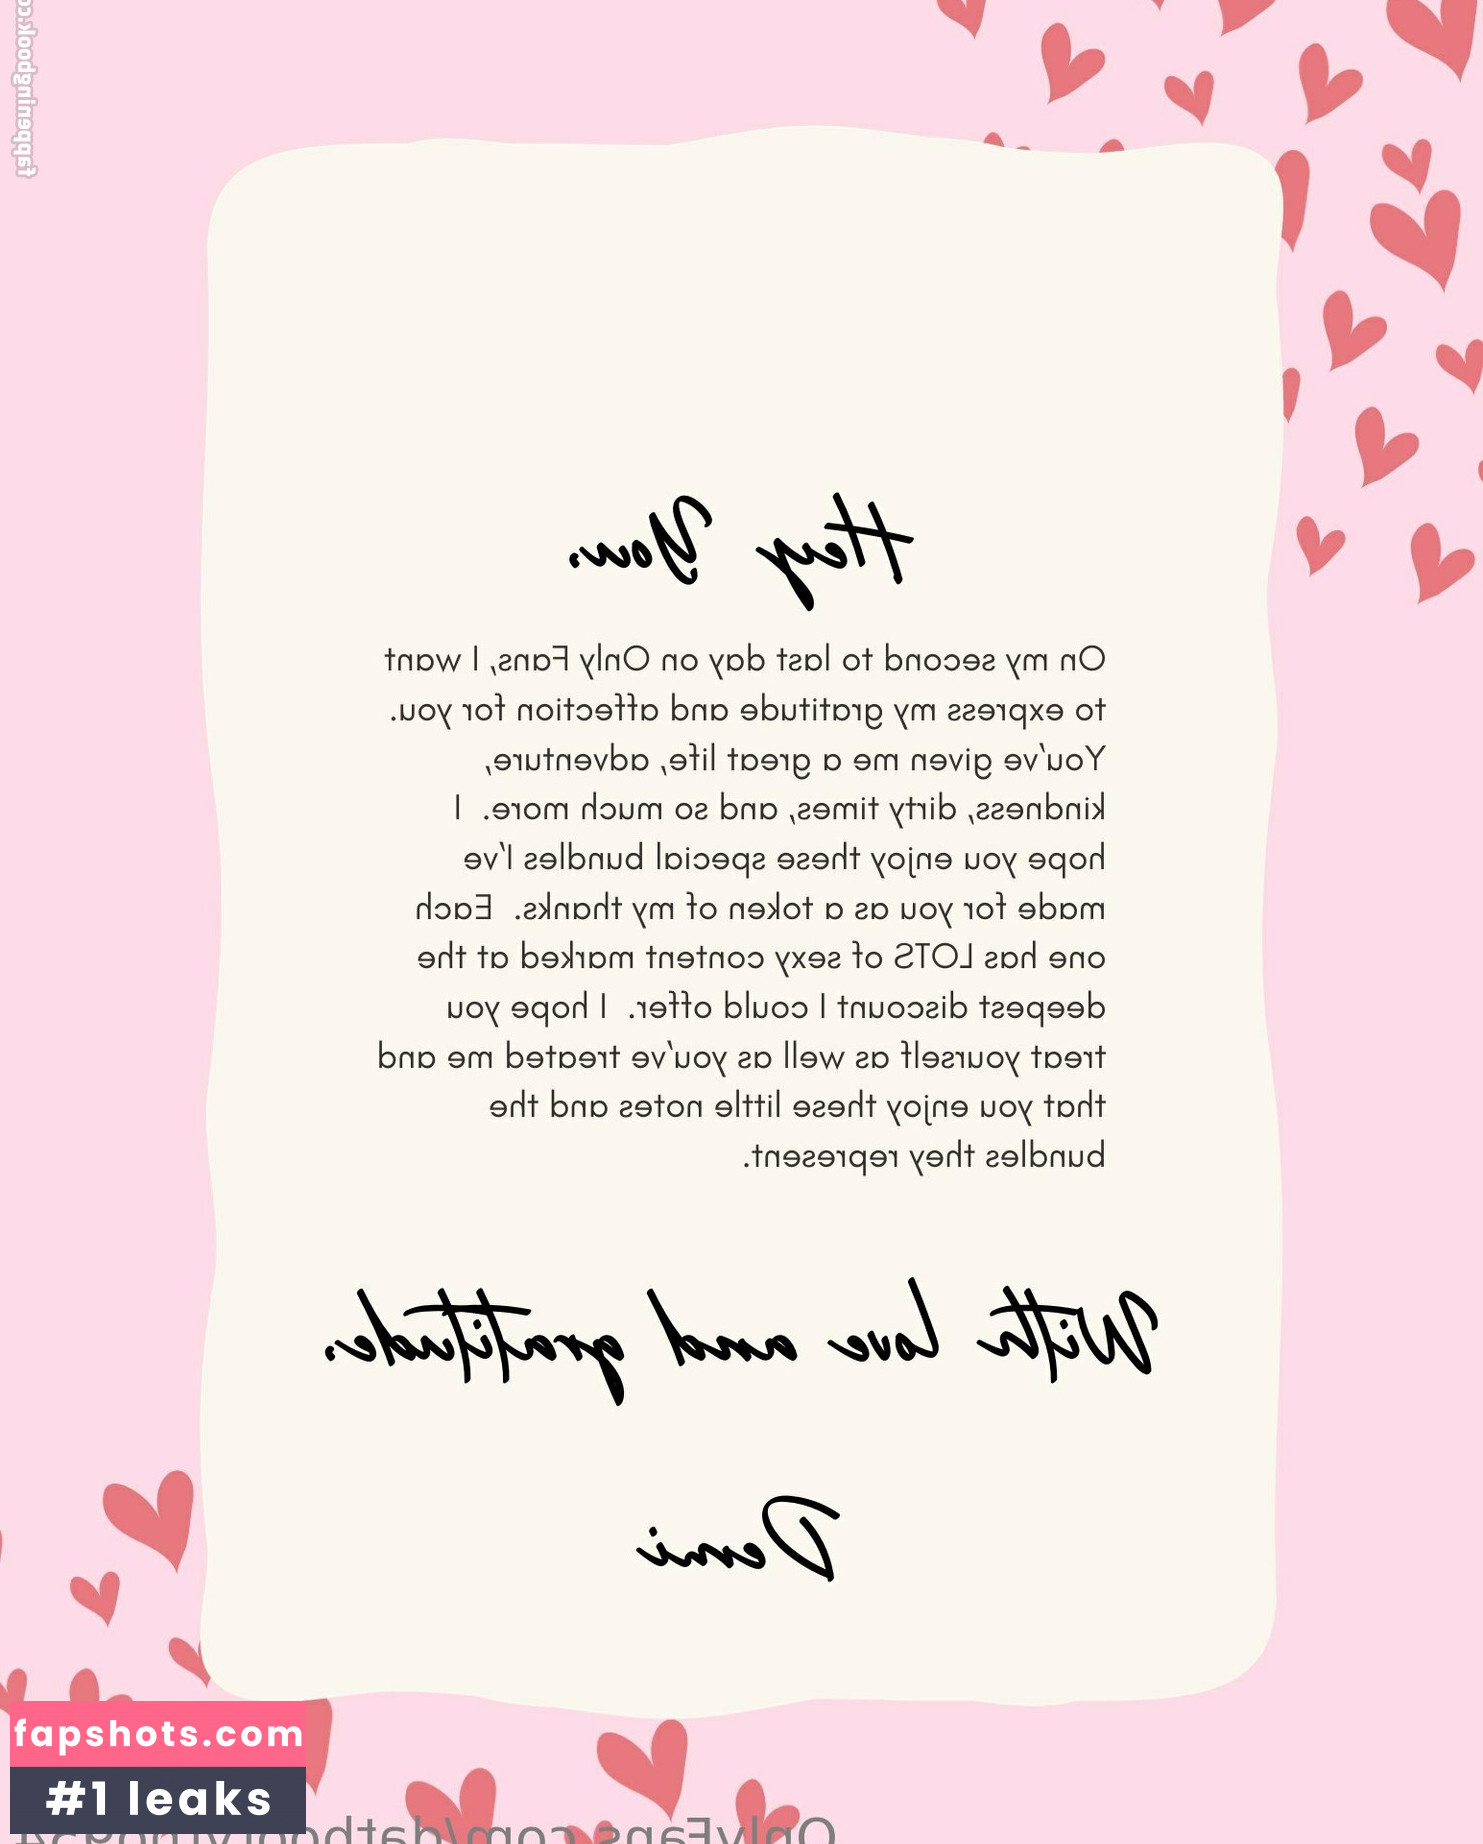 Hey You,
On my second to last day on Only Fans, I want
to express my gratitude and affection for you.
You've given me a great life, adventure,
kindness, dirty times, and so much more. I
hope you enjoy these special bundles I've
made for you as a token of my thanks. Each
one has LOTS of sexy content marked at the
deepest discount I could offer. I hope you
treat yourself as well as you've treated me and
that you enjoy these little notes and the
bundles they represent.
With love and gratitude,
Demi
fapshots.com
#1 leaks